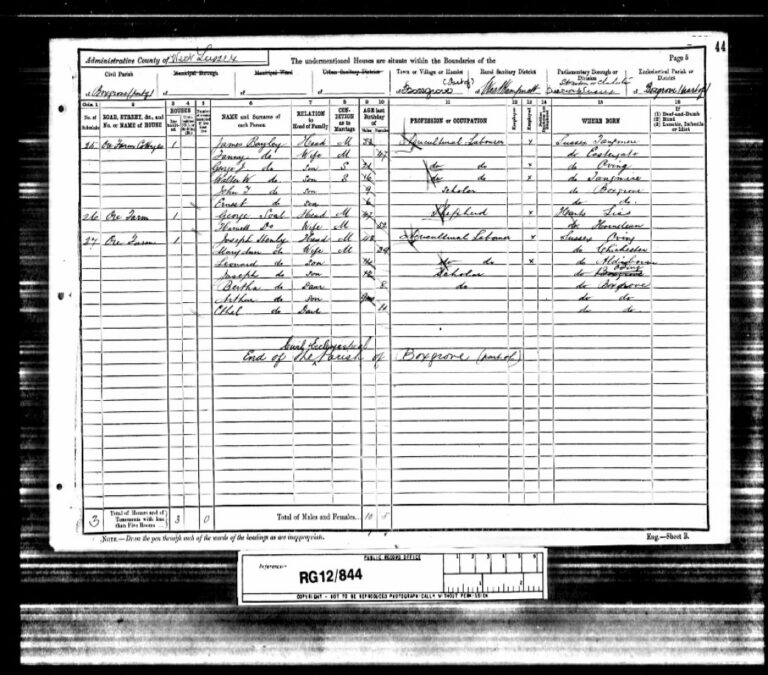 44
Administrative County of West Sussex
The undermentioned Houses are situate within the Boundaries of the
Page 5
Civil Parish
Municipal Borough
Municipal Ward
Urban Sanitary District
Town or Village or Hamlet
Rural Sanitary District
Parliamentary Borough or Division
Ecclesiastical Parish or District
of Boxgrove (part of)
of
of
of
of Boxgrove (Part of)
of West Hampnett
of
of Boxgrove (part of)
Cols. 1 2 3 4 5 6 7 8 9 10 11 12 13 14 15 16
No. of Schedule
ROAD, STREET, &c., and No. or NAME of HOUSE
HOUSES
NAME and Surname of each Person
RELATION to Head of Family
CONDITION as to Marriage
AGE last Birthday of
PROFESSION or OCCUPATION
Employer
Employed
WHERE BORN
If (1) Deaf-and-Dumb (2) Blind (3) Lunatic, Imbecile or Idiot
25 1 James Bayley Head M Agricultural Labourer x Sussex Tangmere
Fanny do Wife M 47 do Eastergate
George J do Son S 21 do do x do Oving
Walter W do Son S 16 do do x do Tangmere
John T do Son 9 Scholar do Boxgrove
Ernest do Son 6 do do
26 Ore Farm 1 George Head M 47 Shepherd x Hants Liss
Do Wife M 52 do Horndean
27 Ore Farm 1 Joseph Head M 42 Agricultural Labourer x Sussex Oving
Mary Ann do Wife M 39 do Chichester
Leonard do Son 14 do do x do
Joseph do Son 12 Scholar do Boxgrove Oving
Bertha do Daur 8 do do Boxgrove
Arthur do Son do do
Ethel do Daur do do
End of the Civil Parish of Boxgrove (part of)
3 Total of Houses and of Tenements with less than Five Rooms 3 0 Total of Males and Females... 10 5
NOTE.—Draw the pen through such of the words of the headings as are inappropriate.
Eng.—Sheet B.
PUBLIC RECORD OFFICE
1 2 3 4 5 6
Reference:-
RG12/844
1 2
COPYRIGHT - NOT TO BE REPRODUCED PHOTOGRAPHICALLY WITHOUT PERMISSION